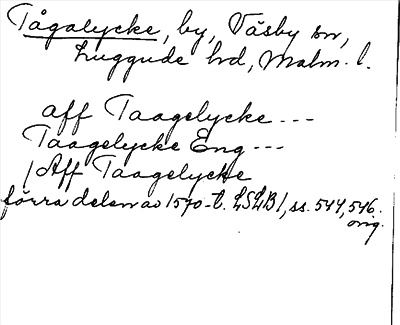 Tågalycke, by, Väsby sn,
Luggude hd, Malm. l.
aff Taagelycke ---
Taagelycke Eng ---
/Aff Taagelycke
förra delen av 1570-t. LSLB1, ss. 544, 546.
orig.